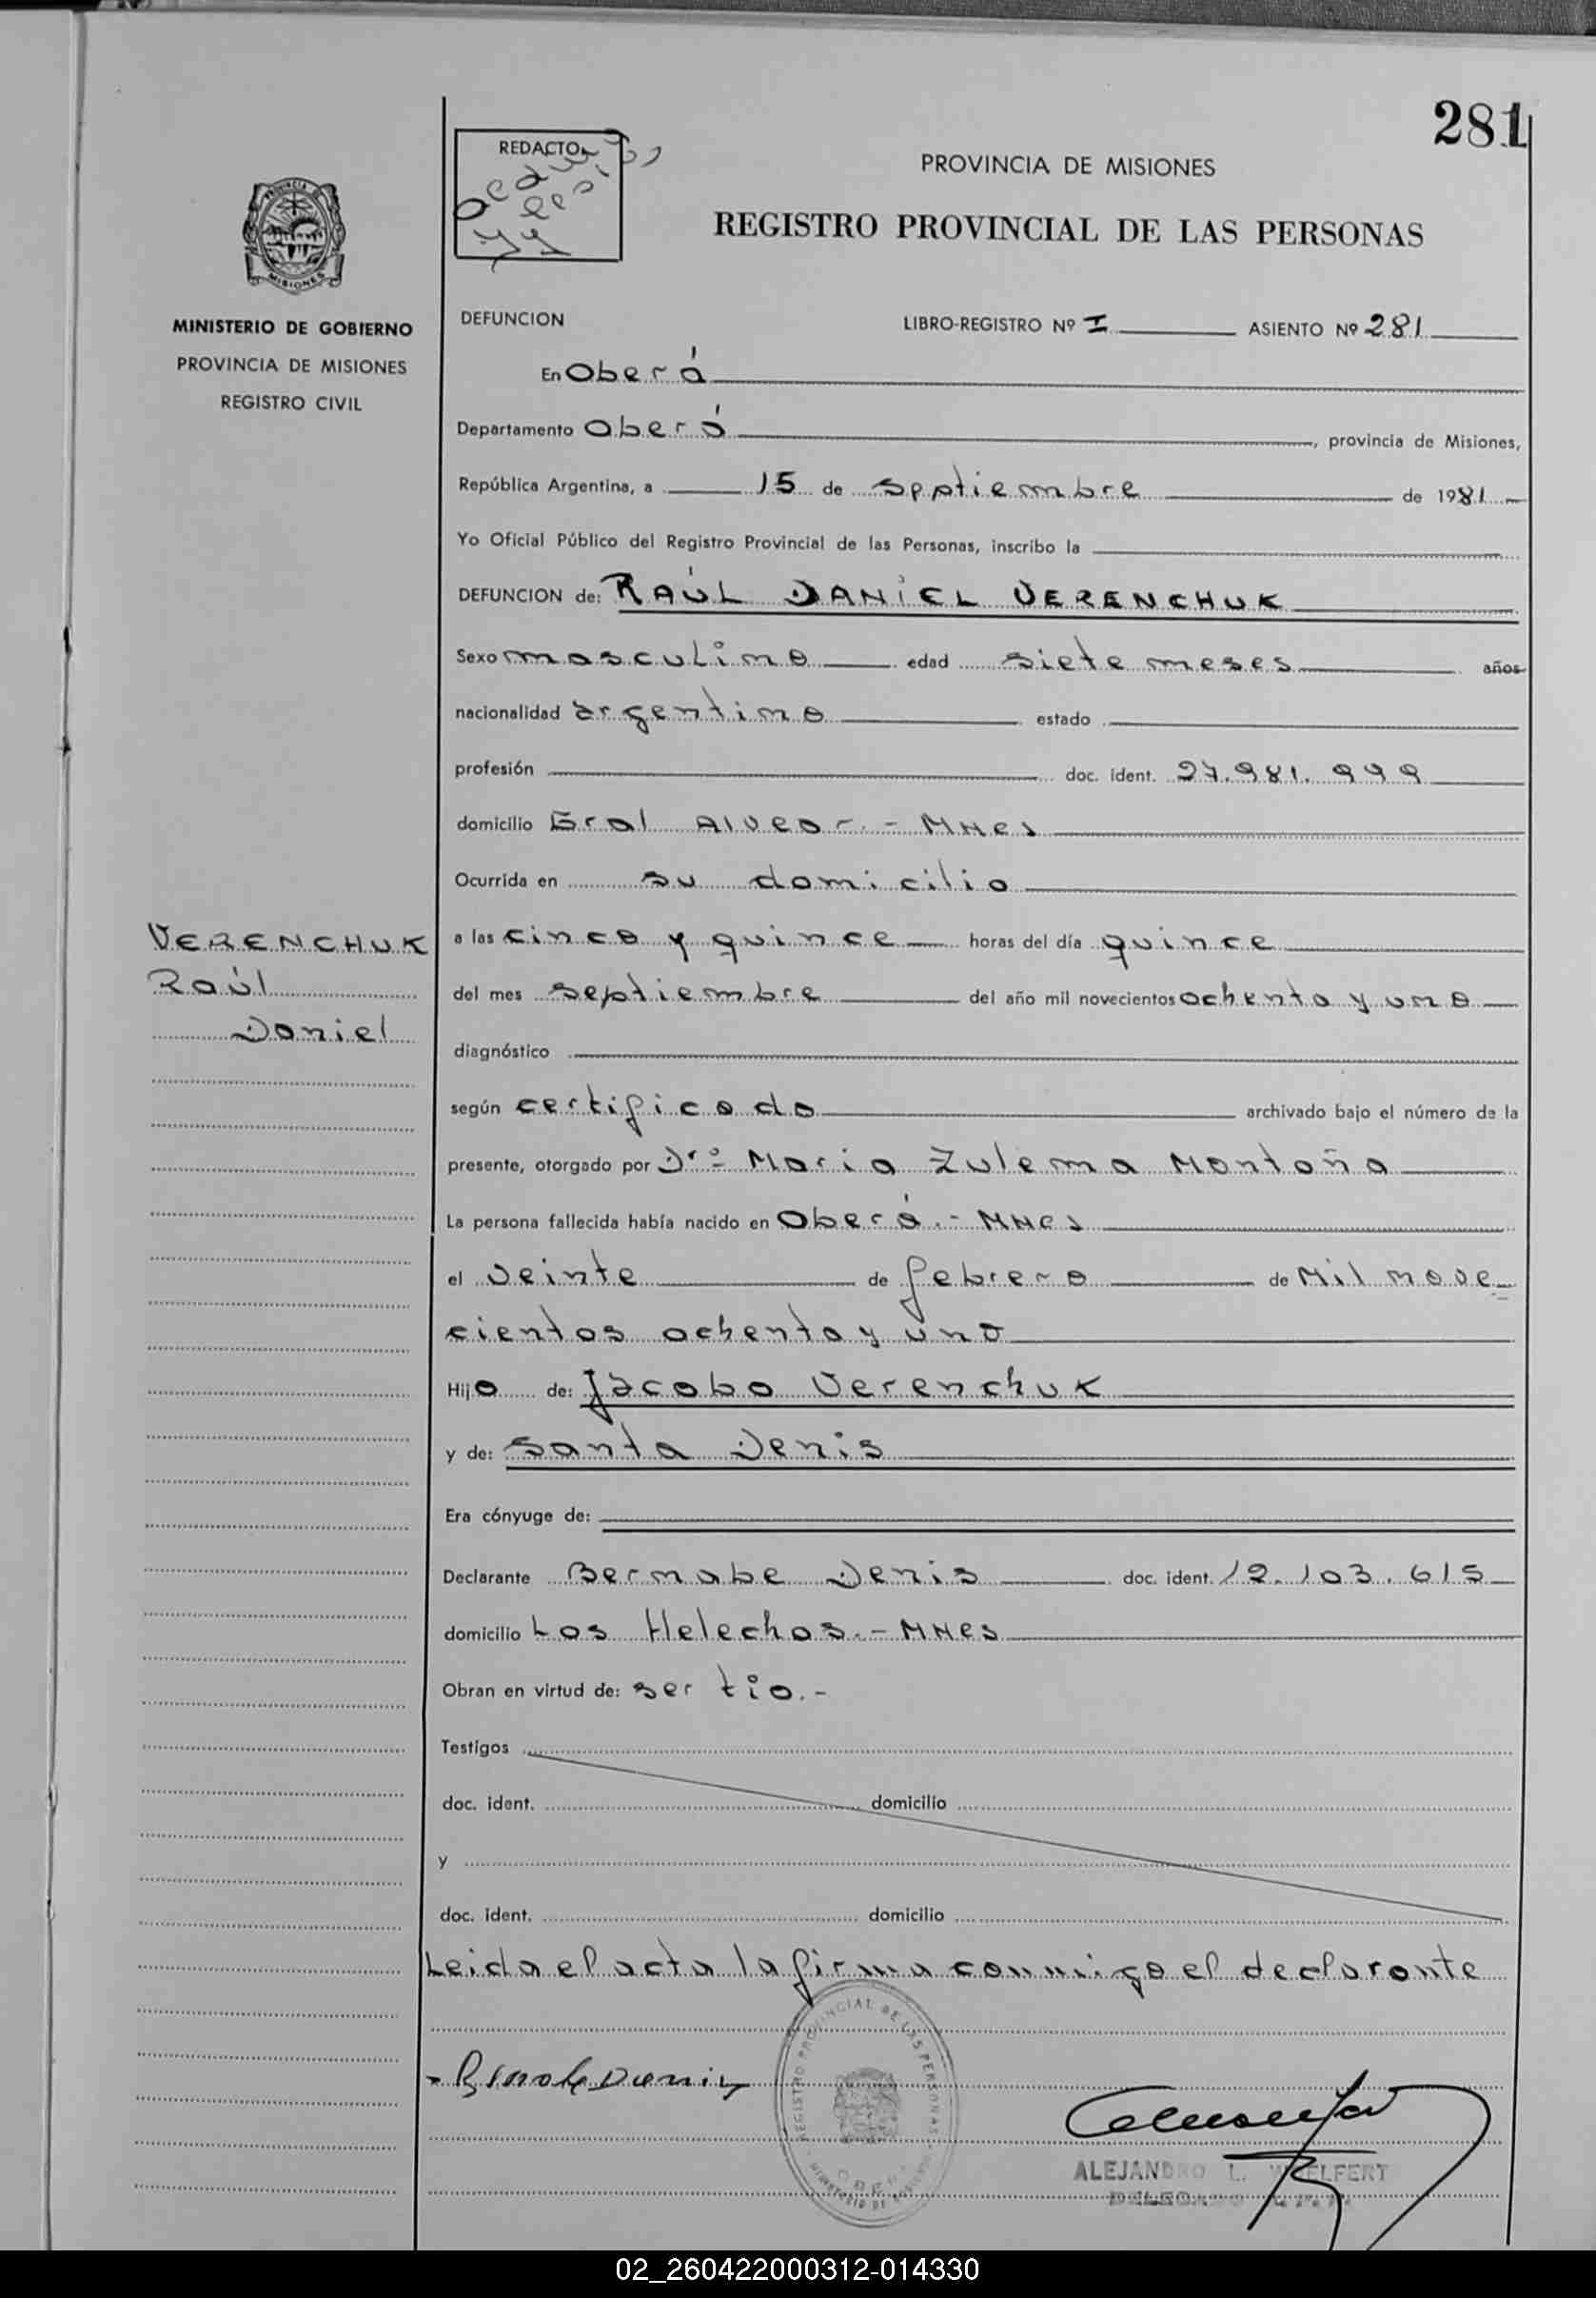 281
REDACTO
PROVINCIA DE MISIONES
REGISTRO PROVINCIAL DE LAS PERSONAS
MISIONES
MINISTERIO DE GOBIERNO
PROVINCIA DE MISIONES
REGISTRO CIVIL
DEFUNCION LIBRO-REGISTRO Nº I ASIENTO Nº 281
En Oberá
Departamento Oberá, provincia de Misiones,
República Argentina, a 15 de septiembre de 1981
Yo Oficial Público del Registro Provincial de las Personas, inscribo la
DEFUNCION de: RAÚL DANIEL VERENCHUK
Sexo masculino edad siete meses años
nacionalidad argentino estado
profesión doc. ident. 27.981.999
domicilio Gral Alvear.- MNes
Ocurrida en su domicilio
VERENCHUK
Raúl
Daniel
a las cinco y quince horas del día quince
del mes septiembre del año mil novecientos ochenta y uno
diagnóstico
según certificado archivado bajo el número de la
presente, otorgado por Drª Maria Zulema Montaña
La persona fallecida había nacido en Oberá.- MNes
el veinte de febrero de Mil nove-
cientos ochenta y uno
Hijo de: Jacobo Verenchuk
y de: Santa Denis
Era cónyuge de:
Declarante Bernabe Denis doc. ident. 12.103.615
domicilio Los Helechos.- MNes
Obran en virtud de: ser tio.-
Testigos
doc. ident. domicilio
y
doc. ident. domicilio
Leida el acta la firma conmigo el declarante
REGISTRO PROVINCIAL DE LAS PERSONAS
ALEJANDRO L. WOELFERT
DELEGADO
02_260422000312-014330